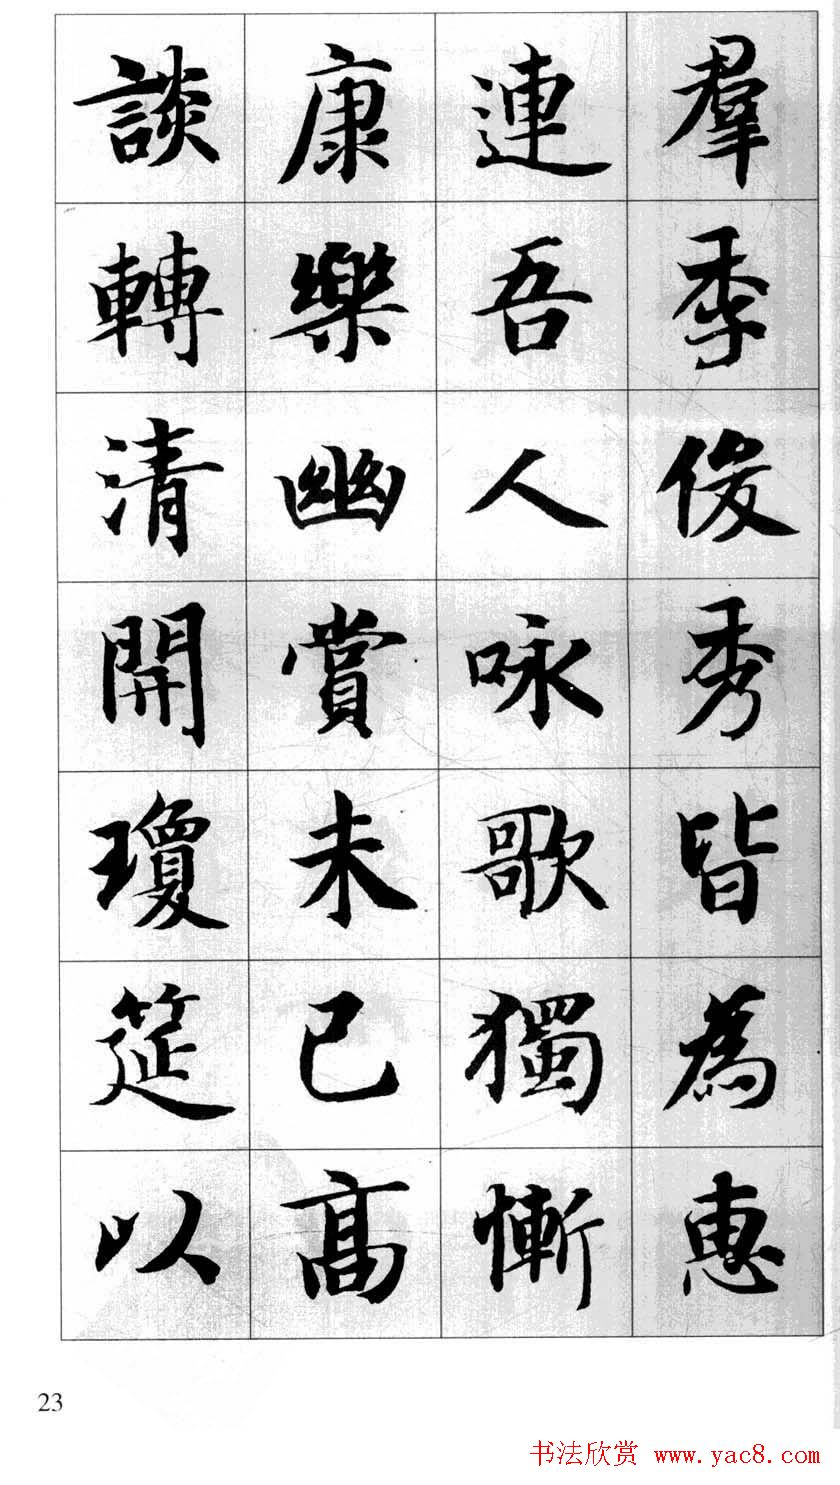 羣季俊秀皆為惠
連吾人咏歌獨慚
康樂幽賞未已高
談轉清開瓊筵以
23
书法欣赏 www.yac8.com